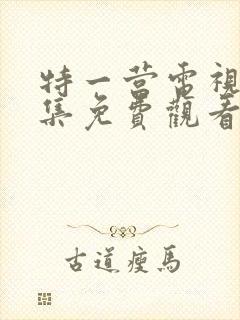 特一营電視
集免費觀看
古道瘦馬